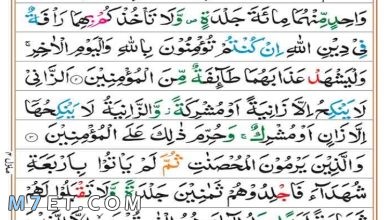 وَاحِدٍ مِّنْهُمَا مِائَةَ جَلْدَةٍ وَّلَا تَأْخُذْكُمْ بِهِمَا رَأْفَةٌ
فِيْ دِيْنِ اللّٰهِ اِنْ كُنْتُمْ تُؤْمِنُوْنَ بِاللّٰهِ وَالْيَوْمِ الْاٰخِرِ ۚ
وَلْيَشْهَدْ عَذَابَهُمَا طَآئِفَةٌ مِّنَ الْمُؤْمِنِيْنَ ۝ اَلزَّانِيْ
لَا يَنْكِحُ اِلَّا زَانِيَةً اَوْ مُشْرِكَةً ۫ وَّالزَّانِيَةُ لَا يَنْكِحُهَاۤ
اِلَّا زَانٍ اَوْ مُشْرِكٌ ۚ وَحُرِّمَ ذٰلِكَ عَلَى الْمُؤْمِنِيْنَ ۝
وَالَّذِيْنَ يَرْمُوْنَ الْمُحْصَنٰتِ ثُمَّ لَمْ يَاْتُوْا بِاَرْبَعَةِ
شُهَدَآءَ فَاجْلِدُوْهُمْ ثَمٰنِيْنَ جَلْدَةً وَّلَا تَقْبَلُوْا لَهُمْ
M7ET.COM